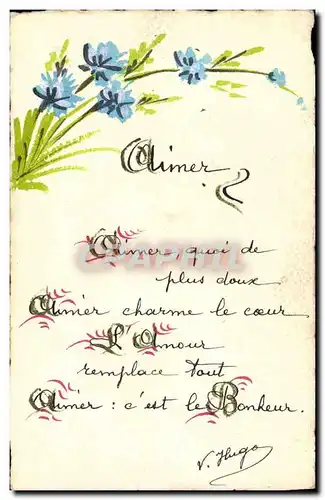 Aimer
Aimer, quoi de
plus doux
Aimer charme le cœur
L'Amour
remplace tout
Aimer : c'est le Bonheur.
V. Hugo